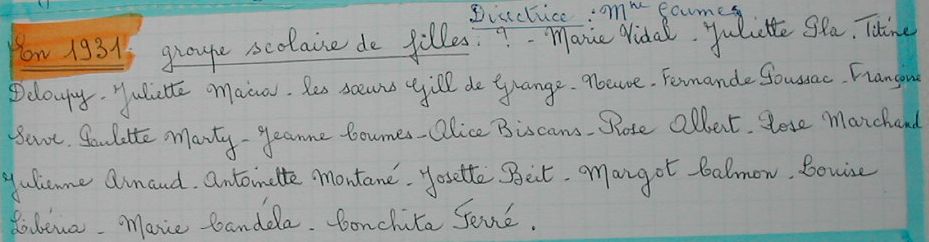 Directrice : Mme Coumes
En 1931. groupe scolaire de filles : ? - Marie Vidal - Juliette Pla - Titine
Deloupy - Juliette Macia - les sœurs Gill de Grange - Neuve - Fernande Goussac - Françoise
Serve - Paulette Marty - Jeanne Coumes - Alice Biscans - Rose Albert - Rose Marchand
Julienne Arnaud - Antoinette Montané - Josette Beit - Margot Calmon - Louise
Libéria - Marie Candéla - Conchita Ferré.